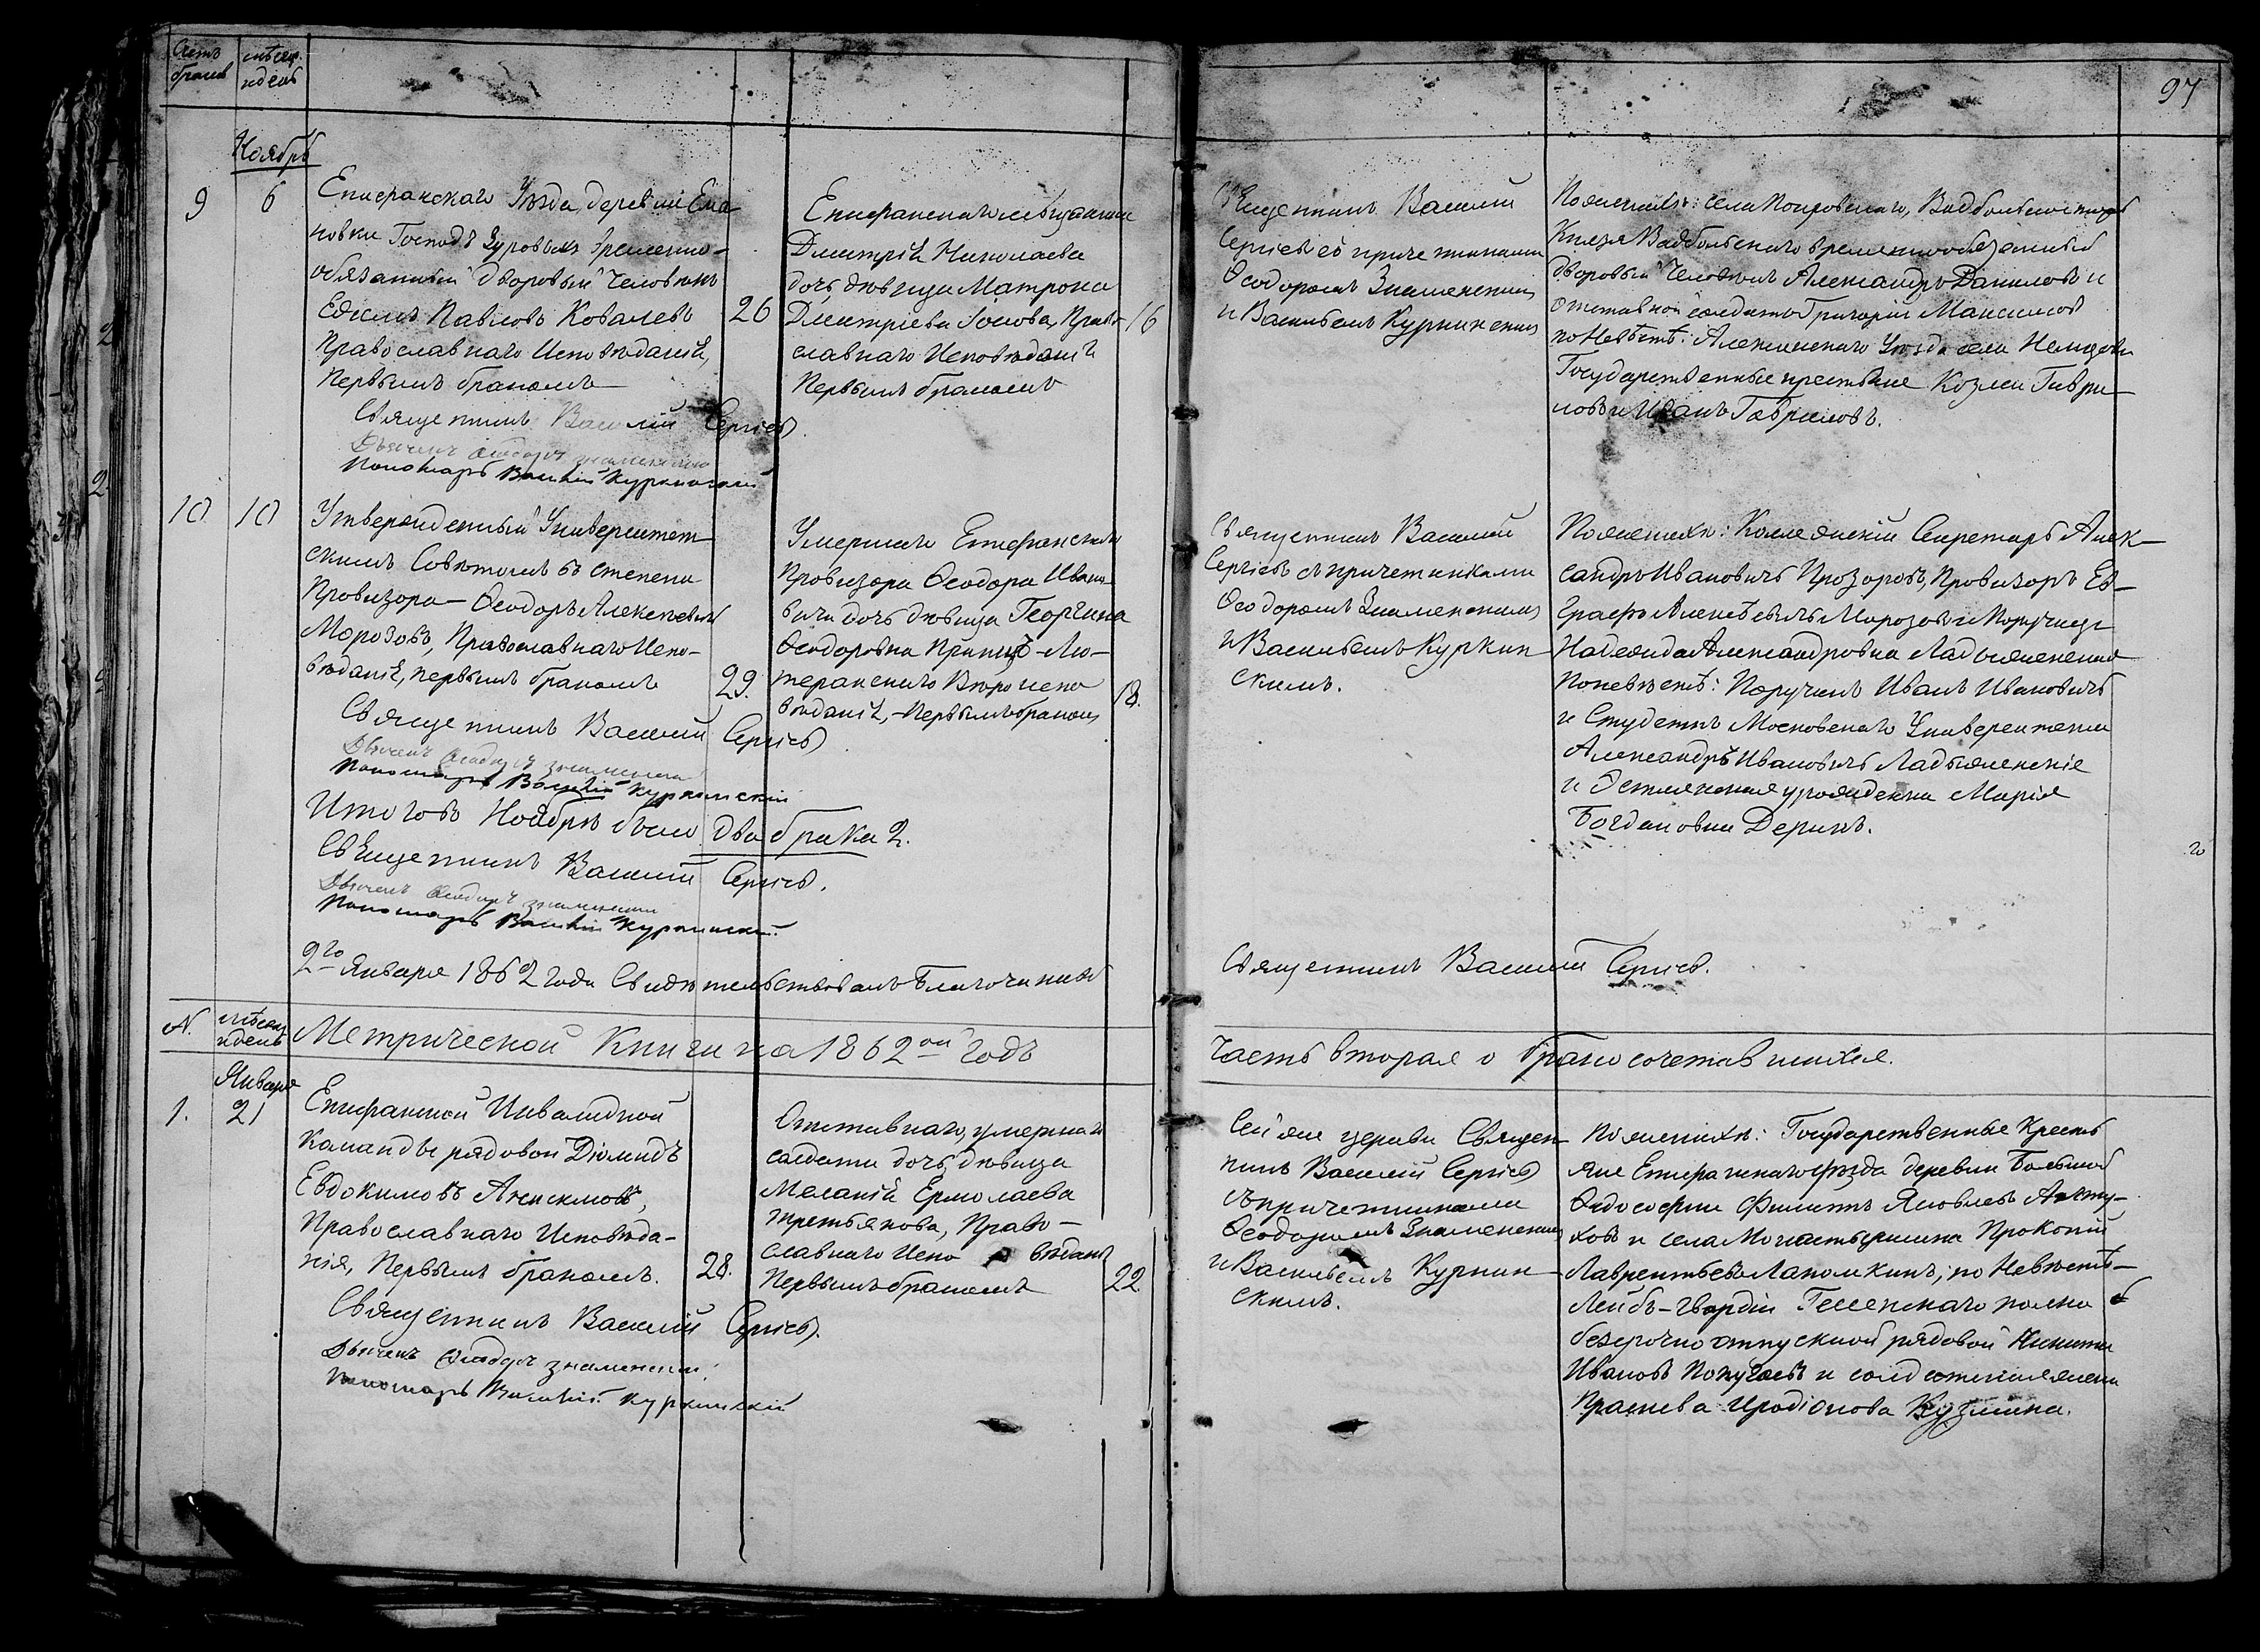 Счетъ браков
мѣсяц. и день
97
Ноябрь
9
6
Епифанскаго Уѣзда, деревни Ела-
новки Господъ Зуровыхъ временно-
обязанный дворовый человѣкъ
Едиcмъ Павловъ Ковалевъ
Православнаго Исповѣданія,
Первымъ бракомъ
26
Священникъ Василій Сергіевъ
Дьячекъ Ѳеодоръ Знаменскій
Пономарь Василій Куркинский
Епифанскаго мѣщанина
Дмитрія Николаева
дочь, дѣвица Матрона
Дмитріева, Право-
славнаго Исповѣданія
Первымъ бракомъ
16
Священникъ Василий
Сергіевъ съ причетниками
Ѳеодоромъ Знаменскимъ
и Васильемъ Куркинскимъ
Поженихѣ: села Покровскаго,
Князя Вадбольскаго временнообязанный
дворовый человѣкъ Александръ Даниловъ и
отставной солдатъ Григорій Максимовъ
по Невѣстѣ: Алексинскаго Уѣзда села
Государственные крестьяне Козма Гаври-
ловъ и Иванъ Гавриловъ.
10
10
Утвержденный Университет-
скимъ Совѣтомъ въ степени
Провизора - Ѳеодоръ Алексѣевичъ
Морозовъ, Православнаго Испо-
вѣданія, первымъ бракомъ
29.
Священникъ Василий Сергіевъ
Дьячекъ Ѳеодоръ Знаменскій
Пономарь Василій Куркинский
Умершаго Епифанскаго
Провизора Ѳеодора Ивано-
вича дочь дѣвица Георгина
Ѳеодоровна - Лю-
теранскаго Вѣроиспо
вѣданія, - Первымъ бракомъ
18.
Священникъ Василий
Сергіевъ съ причетниками
Ѳеодоромъ Знаменскимъ
и Васильемъ Куркин
скимъ.
Поженихѣ: Коллежскій Секретарь Алек-
сандръ Ивановичъ Прозоровъ, Провизоръ Ев-
графъ Алексѣевичъ Морозовъ и Поручица
Надежда Александровна Ладыженская
Поневѣстѣ: Поручикъ Иванъ Ивановичъ
и Студентъ Московскаго Университета
Александръ Ивановичъ Ладыженскіе
и Эстляндская урожденка Марія
Богдановна Дерикъ.
Итого въ Ноябрѣ было два брака 2.
Священникъ Василий Сергіевъ.
Дьячекъ Ѳеодоръ Знаменскій
Пономарь Василій Куркинский.
2го Января 1862 года Свидѣтельствовалъ Благочинный
Священникъ Василий Сергіевъ.
N.
мѣсяц. и день
Метрической Книги на 1862ой годъ
Часть вторая о бракосочетавшихся.
Января
1.
21
Епифанской Инвалидной
Команды рядовой Діомидъ
Евдокимовъ Анисимовъ,
Православнаго Исповѣда-
нія, Первымъ бракомъ.
28.
Священникъ Василий Сергіевъ.
Дьячекъ Ѳеодоръ Знаменскій.
Пономарь Василій Куркинский
Отставнаго, умершаго
солдата дочь, дѣвица
Меланія Ермолаева
Третьякова, Право-
славнаго Испо вѣданія
Первымъ бракомъ
22
Сей же церкви Священ-
никъ Василій Сергіевъ
съ причетниками
Ѳеодоромъ Знаменскимъ
и Васильемъ Куркин-
скимъ.
Поженихѣ: Государственные Кресть
яне Епифанскаго уѣзда деревни Большой
Филиппъ Яковлевъ
ховъ и села Монастырщина Прокопій
Лаврентьевъ Лапомкинъ; по Невѣстѣ-
Лейбъ-Гвардіи полка
безсрочно отпускной рядовой Никита
Ивановъ Попугаевъ и солдатская жена
Ираидіонова Кузмина.